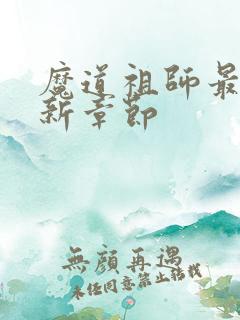 魔道祖師最
新章節
無顏再遇
未经同意禁止转载